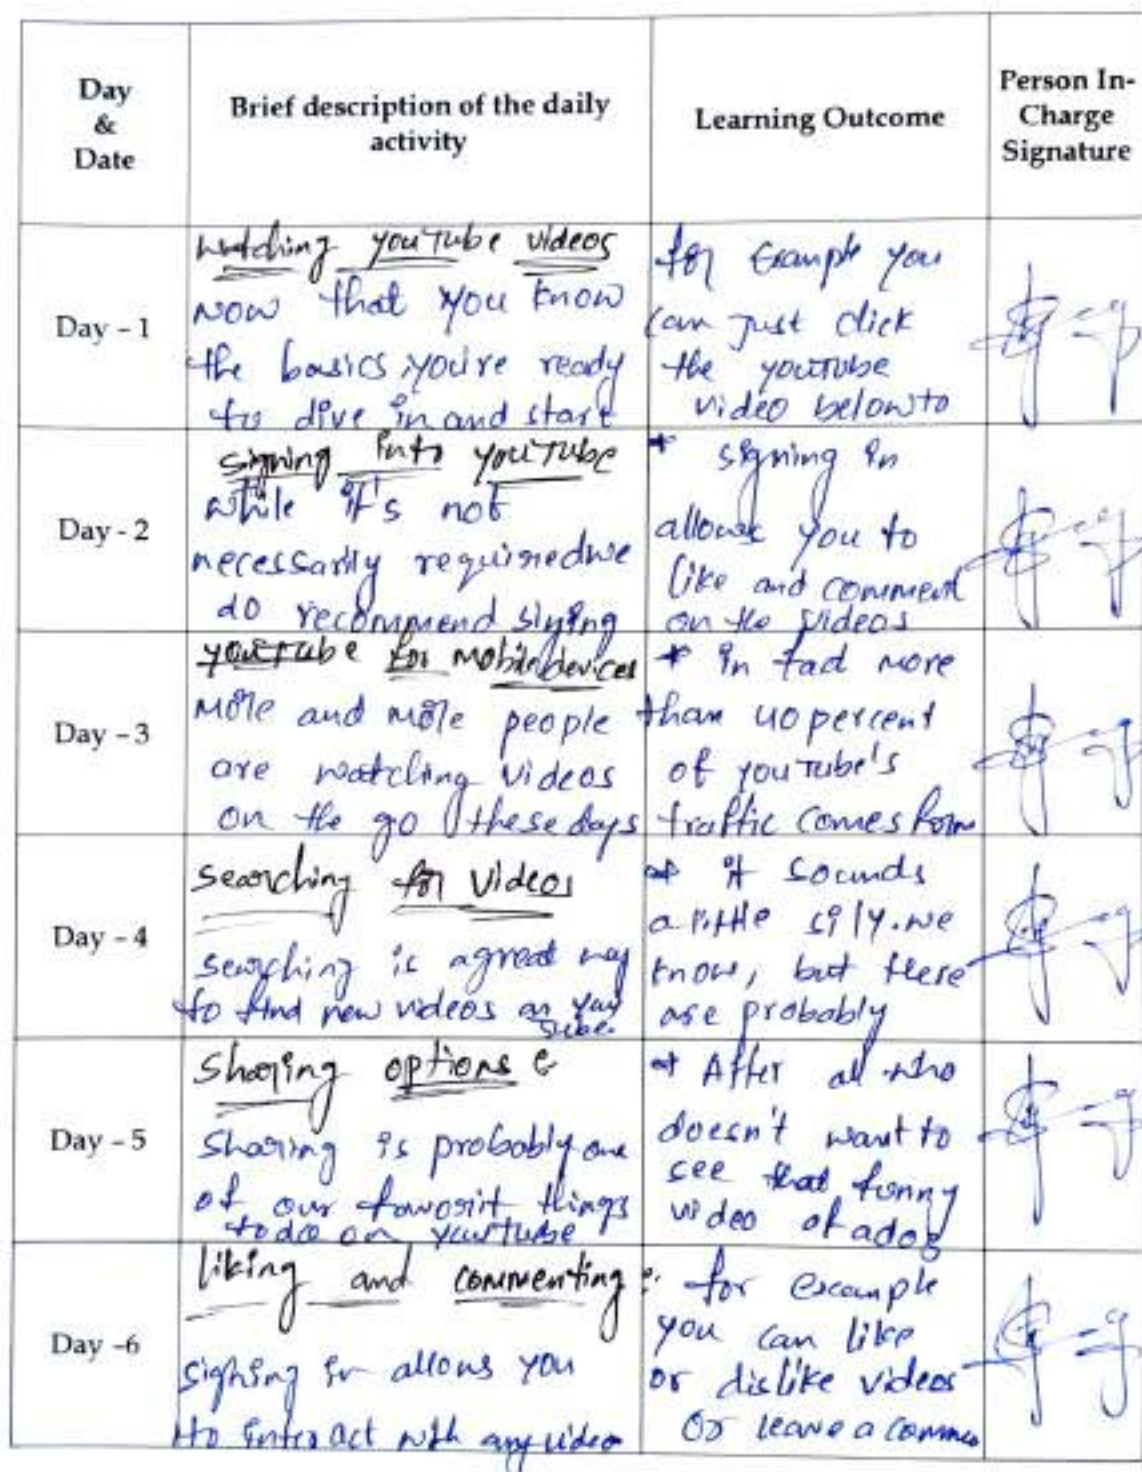 Day
&
Date
Brief description of the daily
activity
Learning Outcome
Person In-
Charge
Signature
Day - 1
watching youTube videos
Now that you know
the basics, you're ready
to dive in and start
for Example you
can just click
the youTube
video below to
Day - 2
signing into youTube
while it's not
necessarily required we
do recommend signing
* signing in
allows you to
like and comment
on the videos
Day - 3
youTube for mobile devices
More and more people
are watching videos
on the go these days
* in fact more
than 40 percent
of youTube's
traffic comes form
Day - 4
searching for videos
searching is a great way
to find new videos on you
Tube.
* it sounds
a little silly. we
know, but these
are probably
Day - 5
Sharing options :
Sharing is probably one
of our favorit things
to do on yourtube
* After all who
doesn't want to
see that funny
video of a dog
Day -6
liking and commenting :
signing in allows you
to interact with any video
for example
you can like
or dislike videos
or leave a commen